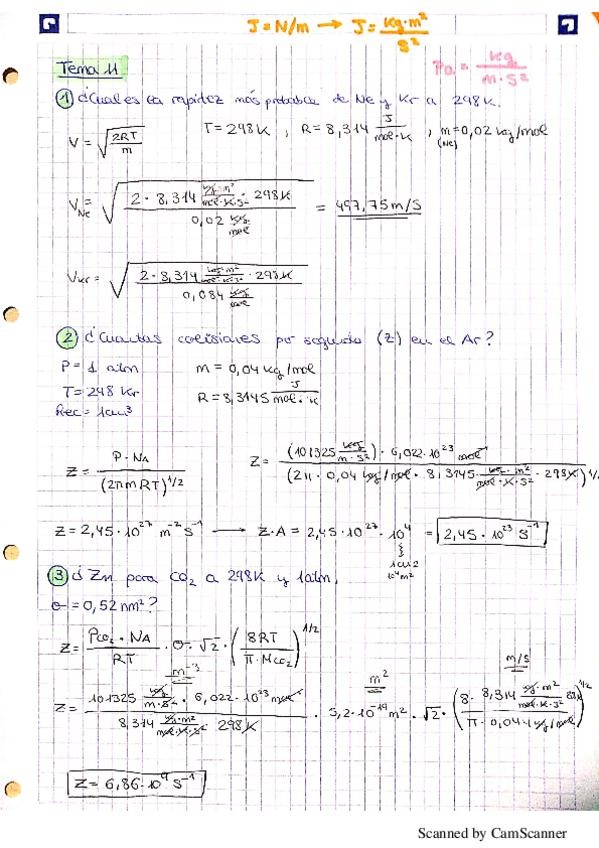 J = N/m → J = kg·m²/s²
Pa = kg/m·s²
Tema 11
① ¿Cual es la rapidez más probable de Ne y Kr a 298K.
V = √(2RT/m)   T = 298K , R = 8,314 J/mol·K , m = 0,02 kg/mol
(Ne)
V_Ne = √(2 · 8,314 kg·m²/mol·K·s² · 298K / 0,02 kg/mol) = 497,75 m/s
V_Kr = √(2 · 8,314 kg·m²/mol·K·s² · 298K / 0,084 kg/mol)
② ¿Cuantas colisiones por segundo (z) en el Ar?
P = 1 atm   m = 0,04 kg/mol
T = 298 Kr   R = 8,3145 J/mol·K
Rec = 1cm³
Z = P·NA/(2πmRT)^1/2   Z = (101325 kg/m·s²) · 6,022·10²³ mol⁻¹/(2π · 0,04 kg/mol · 8,3145 kg·m²/mol·K·s² · 298K)^1/2
Z = 2,45·10²⁷ m⁻² s⁻¹ → Z·A = 2,45·10²⁷ · 10⁴ = 2,45·10²³ s⁻¹
1cm2
10⁴m²
③ ¿Zm para CO₂ a 298K y 1atm,
σ = 0,52 nm²?
Z = PCO₂ · NA/RT · σ · √2 · (8RT/π·MCO₂)^1/2
m⁻³   m²   m/s
Z = 101325 kg/m·s² · 6,022·10²³ mol⁻¹/8,314 kg·m²/mol·K·s² 298K · 5,2·10⁻¹⁹ m² · √2 · (8 · 8,314 kg·m²/mol·K·s² /π · 0,044 kg/mol)^1/2
Z = 6,86·10⁹ s⁻¹
Scanned by CamScanner